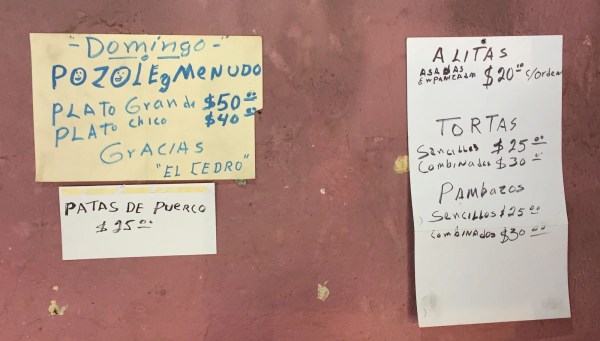 - Domingo -
POZOLE y MENUDO
PLATO Grande $50.00
PLATO chico $40.00
GrACIAS
"EL CEDRO"
PATAS DE PUERCO
$25.00
ALITAS
ASADAS
EMPANIZADAS $20.00 c/orden
TORTAS
Sencillas $25.00
Combinadas $30.00
PAMbAZOS
SENCILLOS $25.00
COMBINADOS $30.00